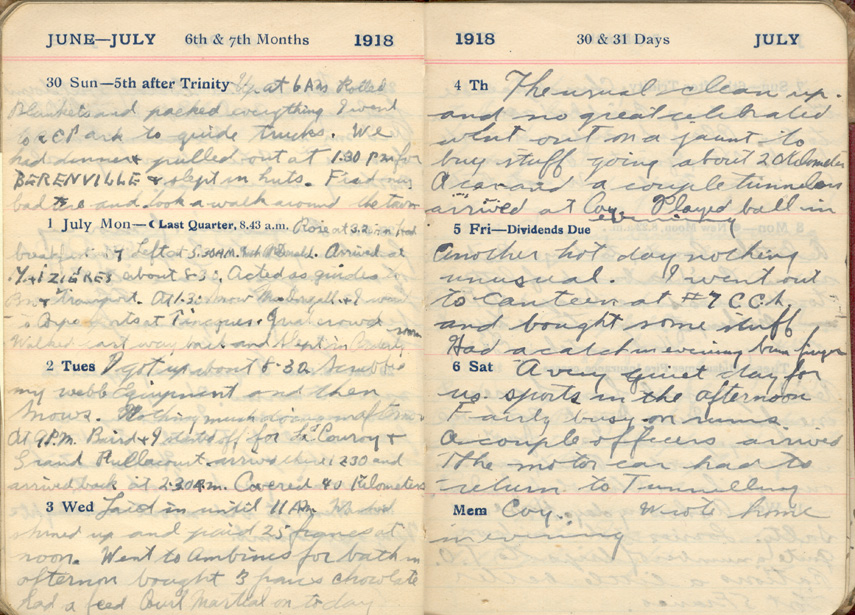 JUNE—JULY 6th & 7th Months 1918
30 Sun—5th after Trinity Up at 6 AM Rolled
Blankets and packed everything I went
to Park to guide trucks. We
had dinner & pulled out at 1.30 P.M. for
BERENVILLE & slept in huts. Fred
bad and took a walk around the town
1 July Mon—☾Last Quarter, 8.43 a.m. Rose at had
breakfast & Left at 5.30AM. Arrived at
about 8.3 . Acted as guides to
& transport. At 1.3 & I went
to Corps Sports at Tincques. crowd
Walked way back and slept in
2 Tues I got up about 8-30 Scrubbed
my webb Equipment and then
mows. Nothing much doing in afternoon
At 9 P.M. Baird & I started off for Le Cauroy &
Grand Rullacourt. arrived 1230 and
arrived back at 2:30 AM. Covered 40 Kilometers
3 Wed Laid in until 11 AM. We had
shined up and paid 25 francs at
noon. Went to Ambines for bath in
afternoon bought 3 francs chocolate
had a feed Court Martial on today
1918 30 & 31 Days JULY
4 Th The usual clean up.
and no great celebrated
went out on a jaunt to
buy stuff going about 2 Kilometers
A car and a couple tunnelers
arrived at Coy. Played ball in
evening
5 Fri—Dividends Due
Another hot day nothing
unusual. I went out
to canteen at #7 C.C.S.
and bought some stuff
Had a catch in evening bum finger
6 Sat A very quiet day for
us. sports in the afternoon
Fairly busy on runs.
A couple officers arrived
The motor car had to
return to Tunnelling
Mem Coy. Wrote home
in evening